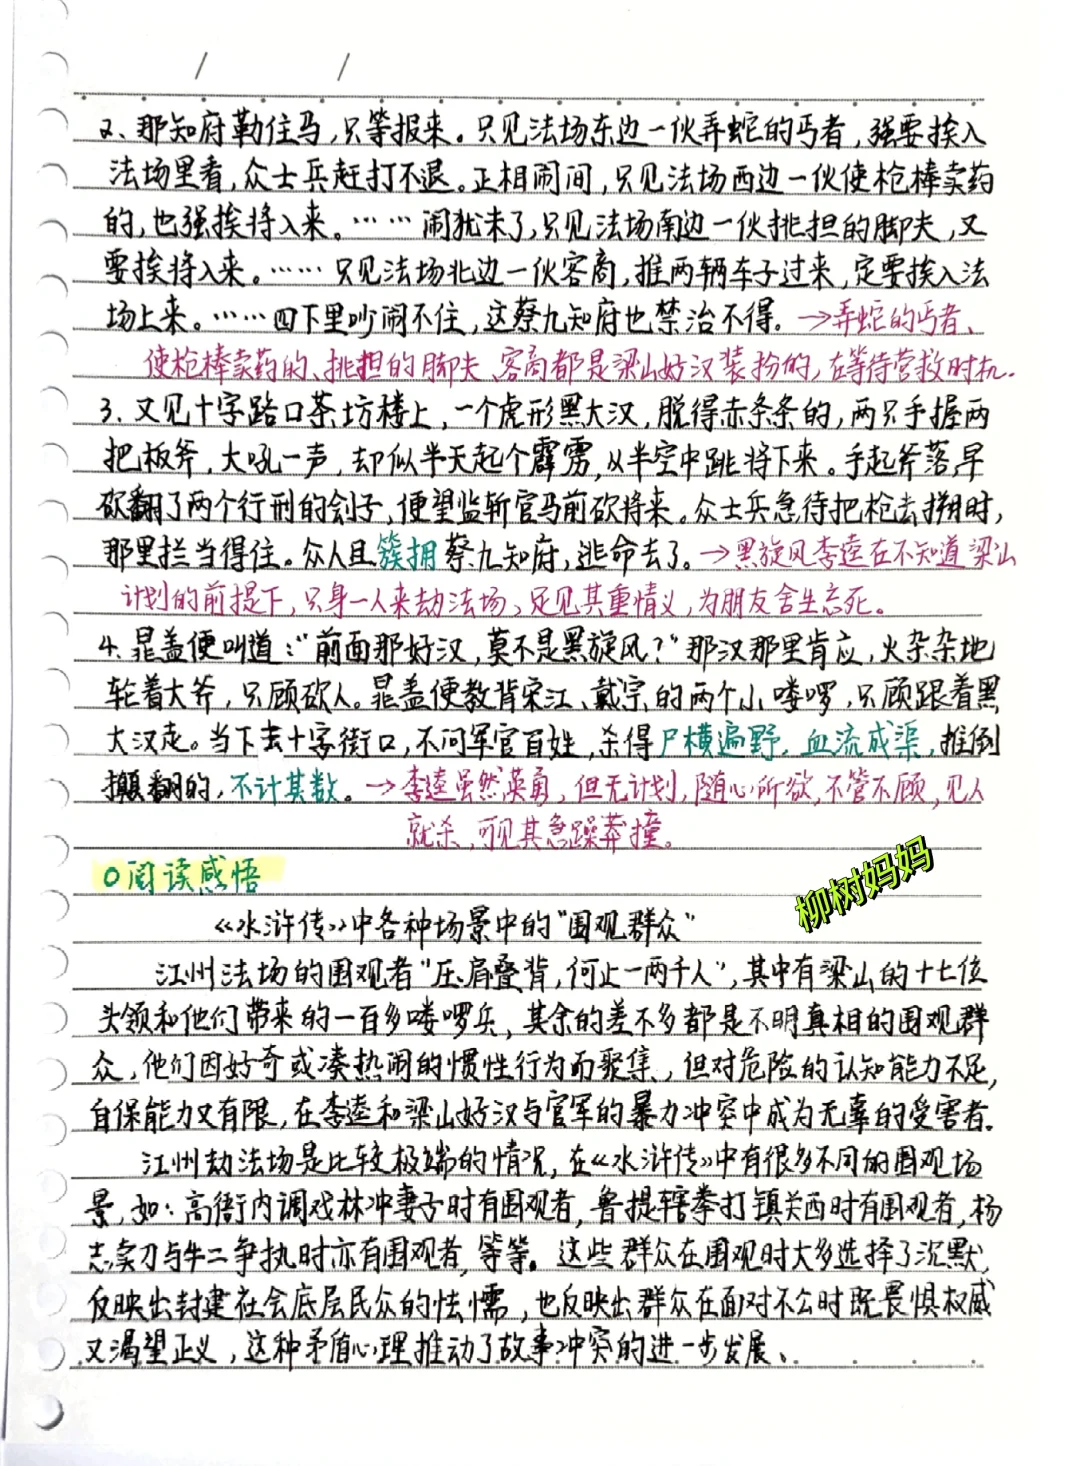 2、那知府勒住马,只等报来。只见法场东边一伙弄蛇的丐者,强要挨入
法场里看,众士兵赶打不退。正相闹间,只见法场西边一伙使枪棒卖药
的,也强挨将入来。……闹犹未了,只见法场南边一伙挑担的脚夫,又
要挨将入来。……只见法场北边一伙客商,推两辆车子过来,定要挨入法
场上来。……四下里吵闹不住,这蔡九知府也禁治不得。→弄蛇的丐者、
使枪棒卖药的、挑担的脚夫、客商都是梁山好汉装扮的,在等待营救时机.
3.又见十字路口茶坊楼上,一个虎形黑大汉,脱得赤条条的,两只手握两
把板斧,大吼一声,却似半天起个霹雳,从半空中跳将下来。手起斧落,早
砍翻了两个行刑的刽子,便望监斩官马前砍将来。众士兵急待把枪去搠时,
那里拦当得住。众人且簇拥蔡九知府,逃命去了。→黑旋风李逵在不知道梁山
计划的前提下,只身一人来劫法场,足见其重情义,为朋友舍生忘死。
4.晁盖便叫道:"前面那好汉,莫不是黑旋风?"那汉那里肯应,火杂杂地
轮着大斧,只顾砍人。晁盖便教背宋江、戴宗的两个小喽啰,只顾跟着黑
大汉走。当下去十字街口,不问军官百姓,杀得尸横遍野,血流成渠,推倒
攧翻的,不计其数。→李逵虽然英勇,但无计划,随心所欲,不管不顾,见人
就杀,可见其急躁莽撞。
柳树妈妈
○阅读感悟
《水浒传》中各种场景中的"围观群众"
江州法场的围观者"压肩叠背,何止一两千人",其中有梁山的十七位
头领和他们带来的一百多喽啰兵,其余的差不多都是不明真相的围观群
众,他们因好奇或凑热闹的惯性行为而聚集,但对危险的认知能力不足,
自保能力又有限,在李逵和梁山好汉与官军的暴力冲突中成为无辜的受害者.
江州劫法场是比较极端的情况,在《水浒传》中有很多不同的围观场
景,如:高衙内调戏林冲妻子时有围观者,鲁提辖拳打镇关西时有围观者,杨
志卖刀与牛二争执时亦有围观者,等等。这些群众在围观时大多选择了沉默,
反映出封建社会底层民众的怯懦,也反映出群众在面对不公时既畏惧权威
又渴望正义,这种矛盾心理推动了故事冲突的进一步发展、